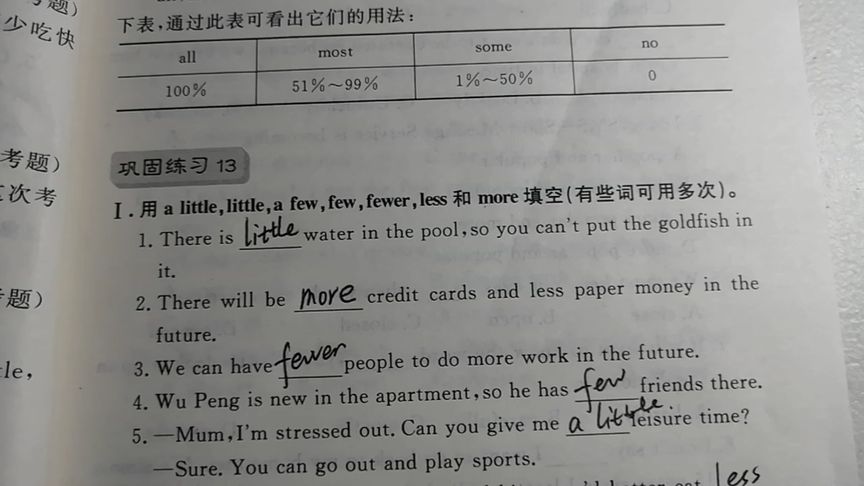 题)
少吃快
考题)
次考
题)
le,
下表,通过此表可看出它们的用法:
all most some no
100% 51%～99% 1%～50% 0
巩固练习 13
Ⅰ. 用 a little,little,a few,few,fewer,less 和 more 填空(有些词可用多次)。
1. There is little water in the pool,so you can't put the goldfish in
it.
2. There will be more credit cards and less paper money in the
future.
3. We can have fewer people to do more work in the future.
4. Wu Peng is new in the apartment,so he has few friends there.
5. —Mum,I'm stressed out. Can you give me a little leisure time?
—Sure. You can go out and play sports.
less